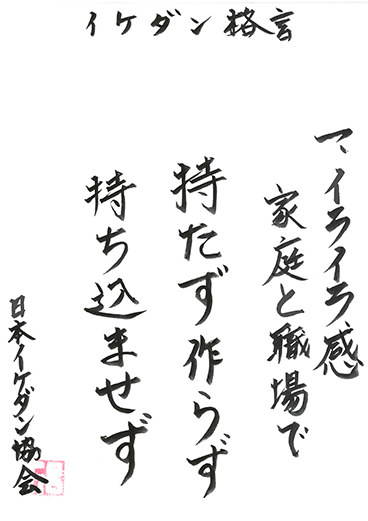 イケダン格言
一、イライラ感
家庭と職場で
持たず作らず
持ち込ませず
日本イケダン協会